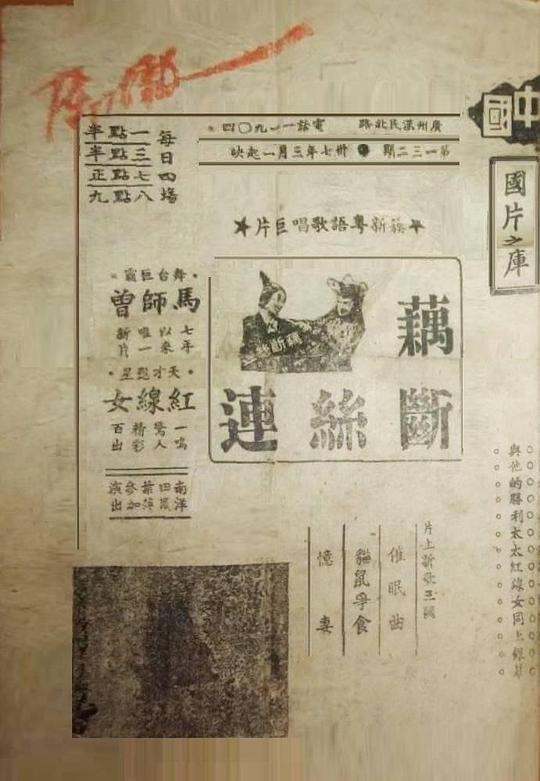 中國
國片之庫
與他的勝利太太紅線女同上銀幕
廣州漢民北路 電話一一九〇四
第一三二期 ● 卅七年三月一起映
每日四場
一點半
三點半
七點正
八點九
★簇新粵語歌唱巨片★
藕
斷絲連
藕斷絲
舞台巨霸
馬師曾
七年
以來
唯一
新片
天才艷星
紅線女
一鳴
驚人
精彩
百出
南洋
參加
演出
片上新歌三闋
催眠曲
貓鼠爭食
憶妻